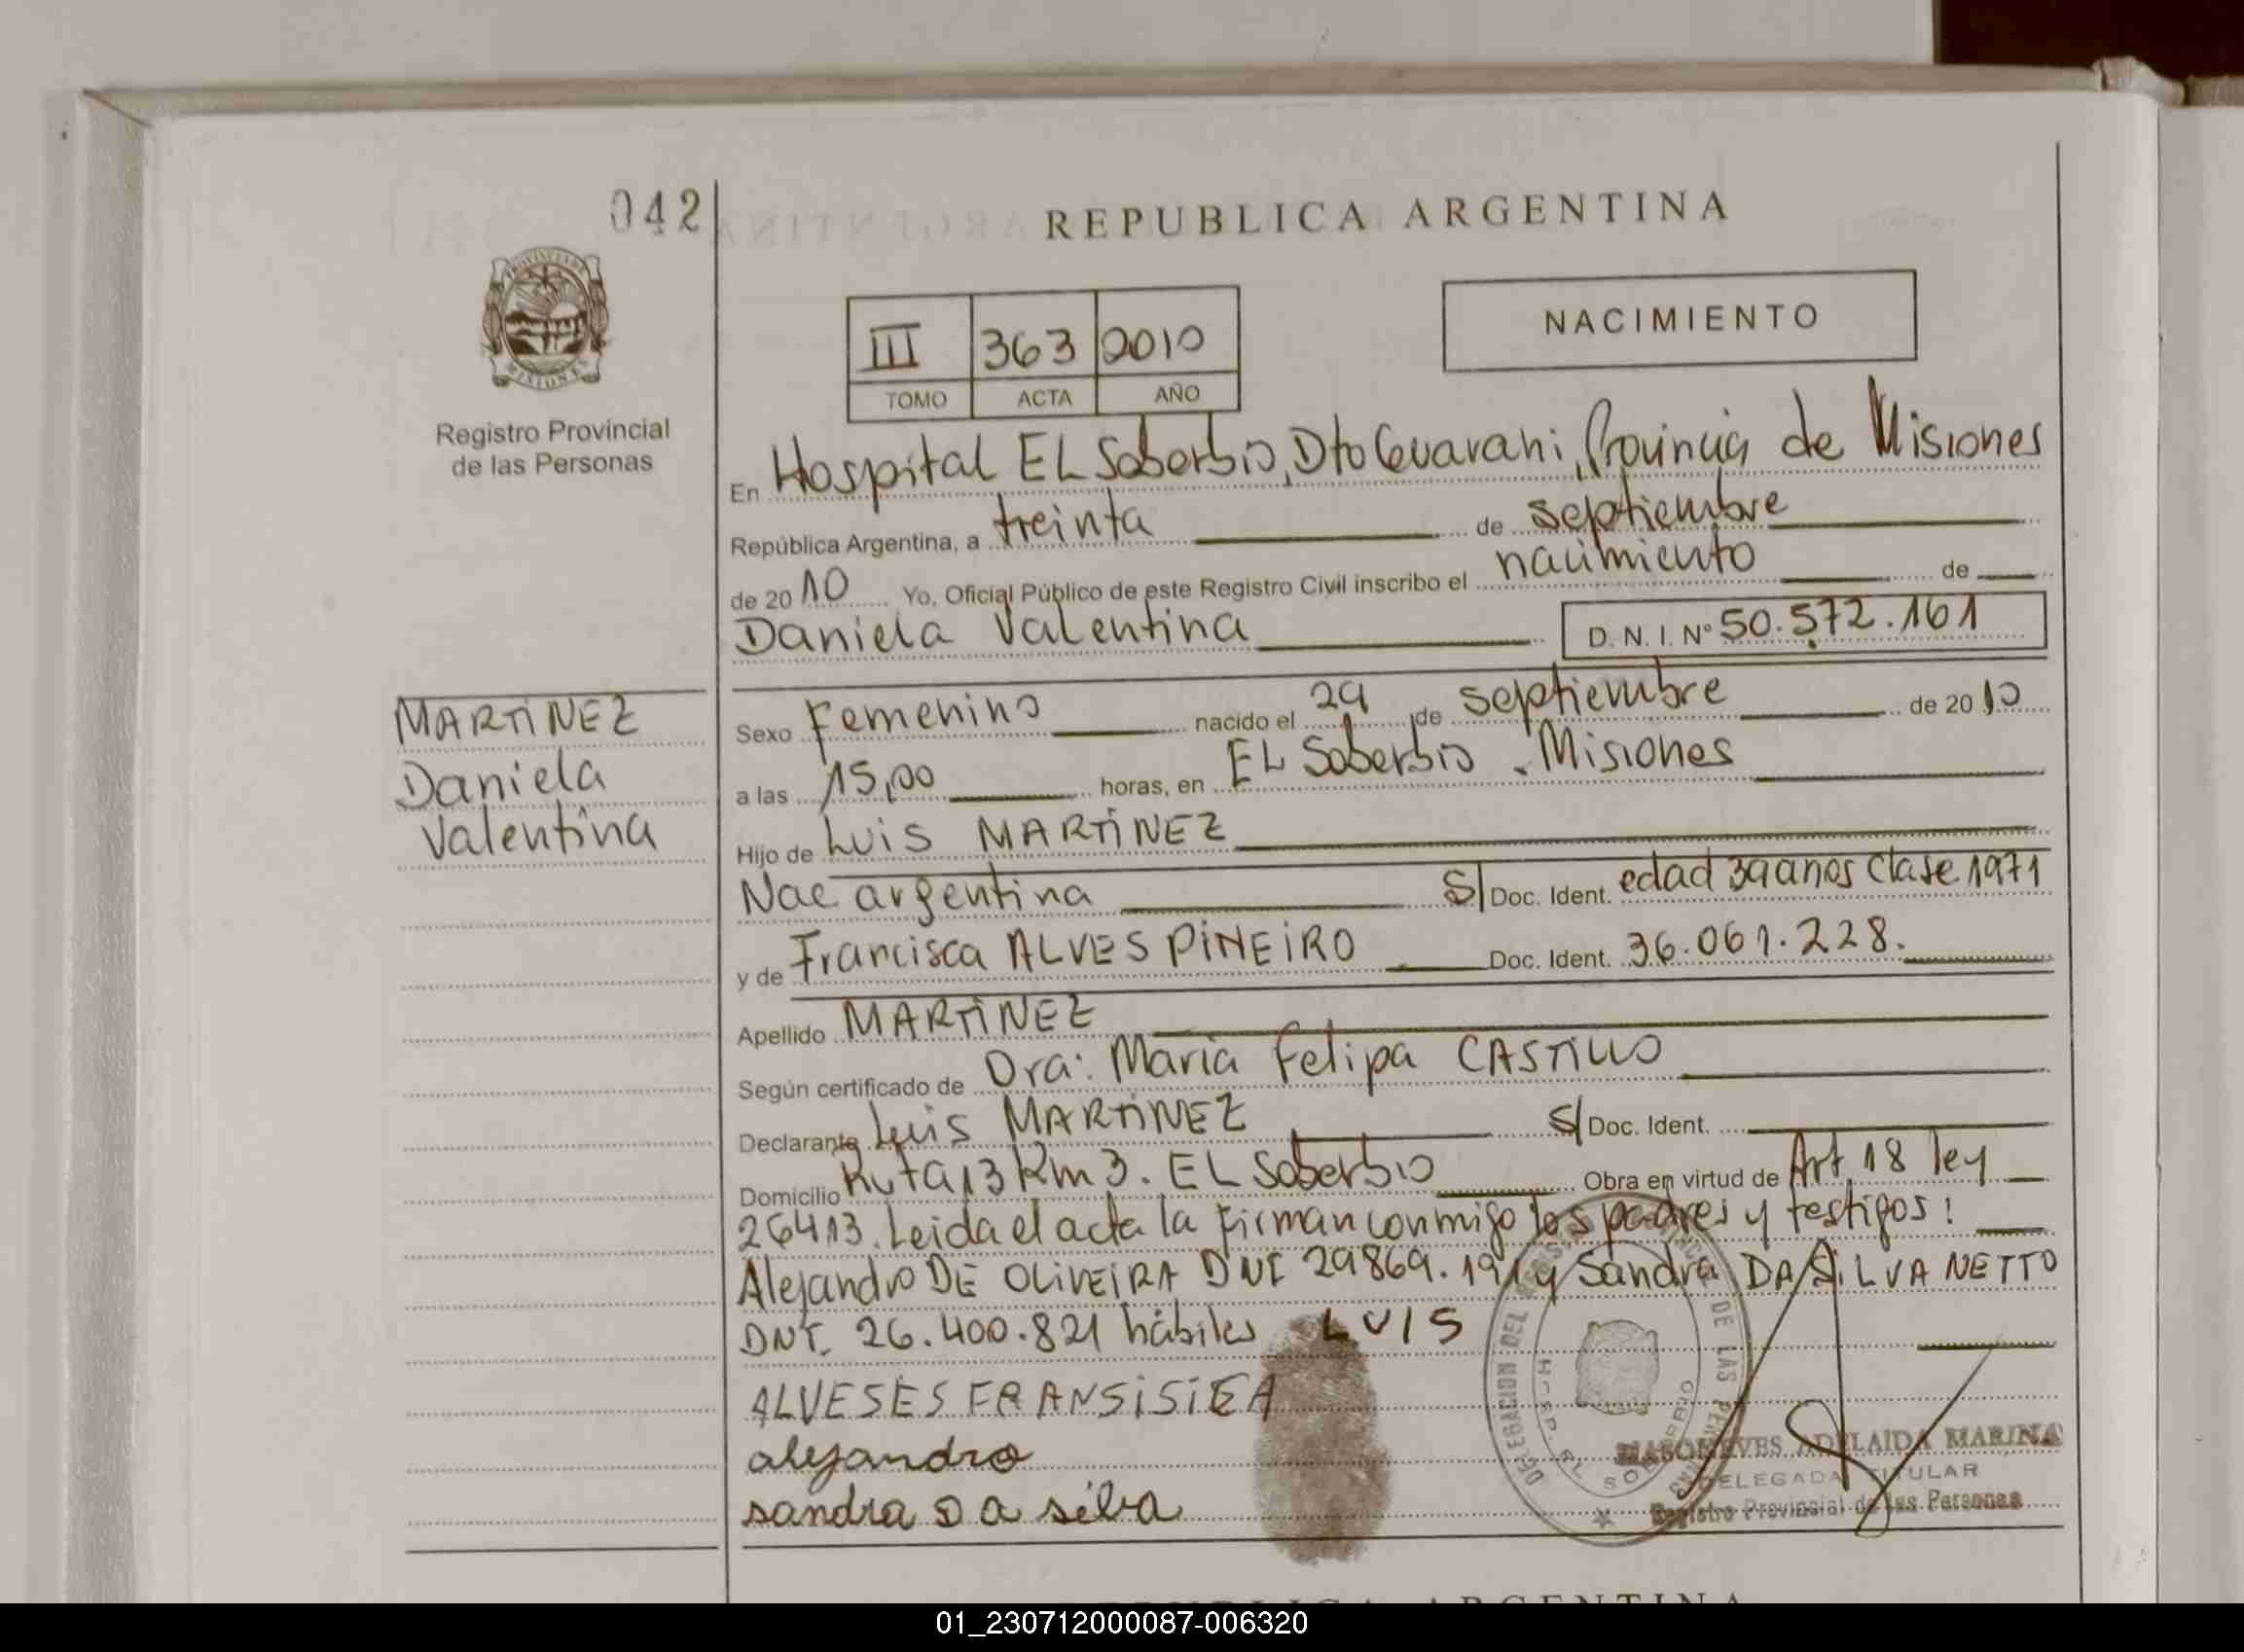 042
REPUBLICA ARGENTINA
PROVINCIA DE
MISIONES
Registro Provincial
de las Personas
III 363 2010
TOMO ACTA AÑO
NACIMIENTO
En Hospital EL Soberbio, Dto Guarani, Provincia de Misiones
República Argentina, a treinta de septiembre
de 2010 Yo, Oficial Público de este Registro Civil inscribo el nacimiento de
Daniela Valentina D. N. I. Nº 50.572.161
MARTINEZ
Daniela
Valentina
Sexo Femenino nacido el 29 de septiembre de 2010
a las 15,00 horas, en EL Soberbio - Misiones
Hijo de Luis MARTINEZ
Nac argentina S/ Doc. Ident. edad 39 anos Clase 1971
y de Francisca ALVES PINEIRO Doc. Ident. 36.061.228.
Apellido MARTINEZ
Según certificado de Dra: Maria Felipa CASTILLO
Declarante Luis MARTINEZ S/ Doc. Ident.
Domicilio Ruta 13 Km 3. EL Soberbio Obra en virtud de Art 18 ley
26413. Leida el acta la firman conmigo los padres y testigos:
Alejandro DE OLIVEIRA DNI 29869.191 y Sandra DA SILVA NETTO
DNI. 26.400.821 hábiles LUIS
ALVESES FRANSISIEA
alejandro
sandra Da silva
DELEGACION DEL DE LAS
EL SOBERBIO
ADELAIDA MARINA
DELEGADA TITULAR
Registro Provincial de las Personas
REPUBLICA ARGENTINA
01_230712000087-006320